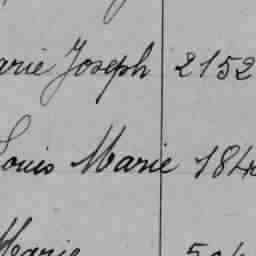 arie Joseph 2152
Louis Marie 184
Marie 504